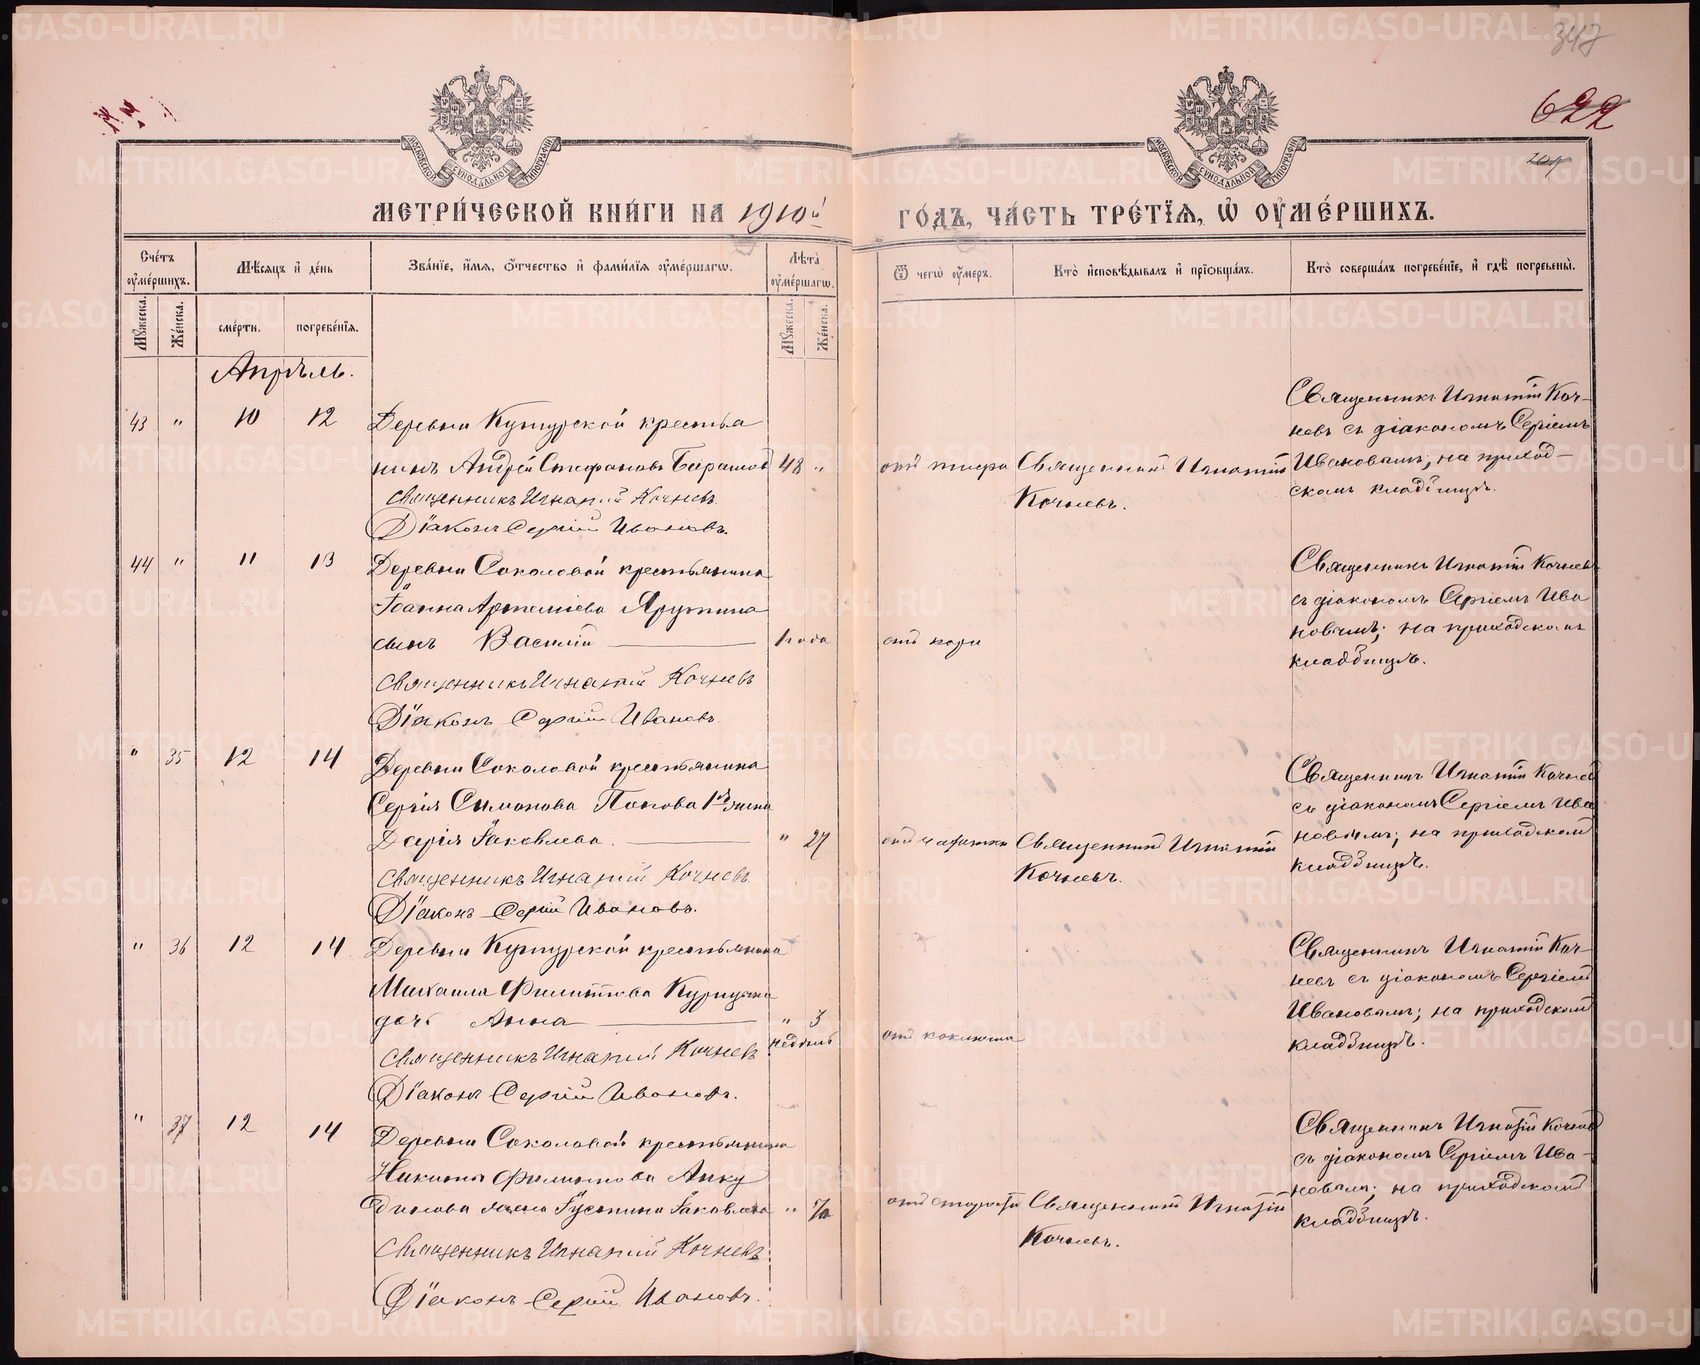 347
622
МЕТРИ́ЧЕСКОЙ КНИ́ГИ НА 1910й ГО́ДЪ, ЧА́СТЬ ТРЕ́ТЇѦ, Ѡ҆ ОУ҆МЕ́РШИХЪ.
МОСКОВСКОЙ СѴНОДАЛЬНОЙ ТИПОГРАФІИ
МОСКОВСКОЙ СѴНОДАЛЬНОЙ ТИПОГРАФІИ
Сче́тъ оу҆ме́ршихъ.
Мѣ́сяцъ и҆ де́нь
Зва́нїе, и҆́мя, ѻ҆́тчество и҆ фами́лїя оу҆ме́ршагѡ.
Лѣта̀ оу҆ме́ршагѡ.
Ѿ чегѡ̀ оу҆́меръ.
Кто̀ и҆сповѣ́дывалъ и҆ прїѡбща́лъ.
Кто̀ соверша́лъ погребе́нїе, и҆ гдѣ̀ погребены̀.
Мꙋ́жеска.
Же́нска.
сме́рти.
погребе́нїя.
Мꙋ́жеска.
Же́нска.
Апрѣль.
43 " 10 12
Деревни Кунгурской крестья
нинъ Андрей Стефановъ Барашов 48 "
Священникъ Игнатій Кочневъ
Діаконъ Сергій Ивановъ.
отъ тифа
Священникъ Игнатій
Кочневъ.
Священникъ Игнатій Коч-
невъ съ діакономъ Сергіемъ
Ивановымъ; на приход-
скомъ кладбищѣ.
44 " 11 13
Деревни Соколовой крестьянина
Іоанна Артеміева
сынъ Василій 1 года
Священникъ Игнатій Кочневъ
Діаконъ Сергій Ивановъ
отъ кори
Священникъ Игнатій Кочневъ
съ діакономъ Сергіемъ Ива
новымъ; на приходскомъ
кладбищѣ.
" 35 12 14
Деревни Соколовой крестьянина
Сергія Симонова Попова жена
Дарія Іаковлева. " 27
Священникъ Игнатій Кочневъ
Діаконъ Сергій Ивановъ.
отъ чахотки
Священникъ Игнатій
Кочневъ.
Священникъ Игнатій Кочнев
съ діакономъ Сергіемъ Ива
новымъ; на приходском
кладбищѣ.
" 36 12 14
Деревни Кунгурской крестьянина
Михаила Филиппова
дочь Анна " 3
недѣль
Священникъ Игнатій Кочневъ
Діаконъ Сергій Ивановъ.
отъ коклюша
Священникъ Игнатій Коч-
невъ съ діакономъ Сергіемъ
Ивановымъ; на приходском
кладбищѣ.
" 37 12 14
Деревни Соколовой крестьянина
Никиты Филиппова Анку
динова жена Іустина Іаковлева " 70
Священникъ Игнатій Кочневъ
Діаконъ Сергій Ивановъ.
отъ старости
Священникъ Игнатій
Кочневъ.
Священникъ Игнатій Кочнев
съ діакономъ Сергіемъ Ива-
новымъ; на приходском
кладбищѣ.
METRIKI.GASO-URAL.RU